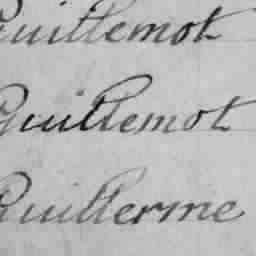 Guillemot
Guillemot
Guillerme